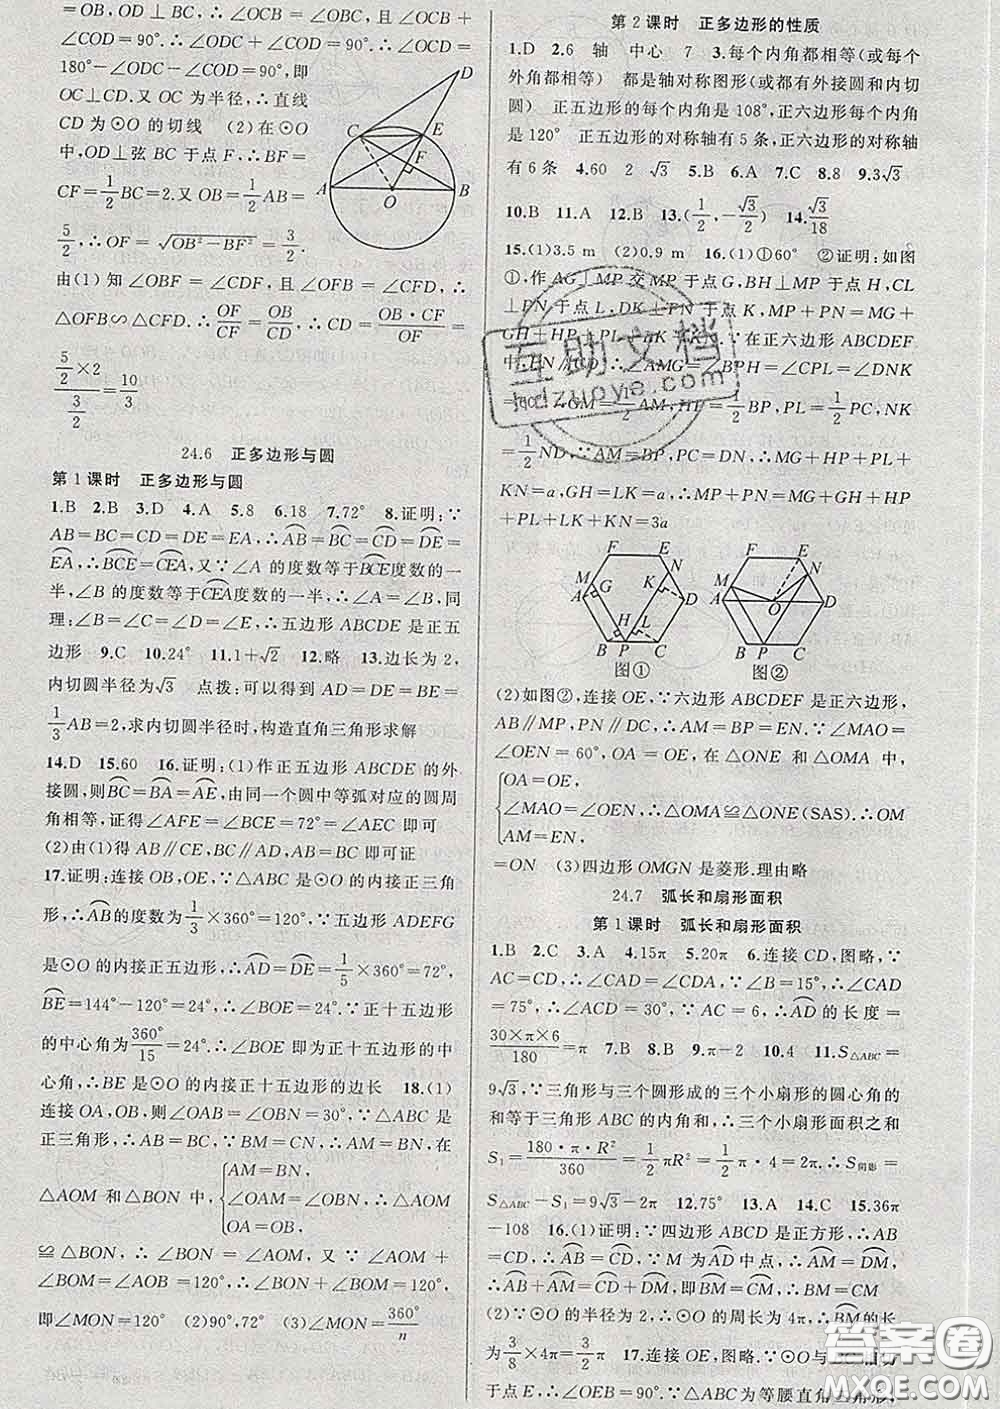 =OB,OD⊥BC,∴∠OCB=∠OBC,且∠OCB+
∠COF=90°.∴∠OCB=∠ODC,∴∠OCD=
180°-∠ODC-∠COD=90°,即
OC⊥CD.又OC为半径,∴直线
CD为⊙O的切线 (2)在⊙O
中,OD⊥弦BC于点F,∴BF=
CF=1/2BC=2.又OB=1/2AB=
5/2,∴OF=√(OB²-BF²)=3/2.
由(1)知∠OBF=∠CDF,且∠OFB=∠CFD,∴
△OFB∽△CFD,∴OF/CF=OB/CD,∴CD=OB·CF/OF=
(5/2×2)/(3/2)=10/3
D
C
E
F
A
O
B
24.6 正多边形与圆
第1课时 正多边形与圆
1.B 2.B 3.D 4.A 5.8 6.18 7.72° 8.证明:∵
AB=BC=CD=DE=EA,∴AB=BC=CD=DE=
EA,∴BCE=CEA,又∵∠A的度数等于BCE度数的一
半,∠B的度数等于CEA度数的一半,∴∠A=∠B,同
理:∠B=∠C=∠D=∠E,∴五边形ABCDE是正五
边形 9.C 10.24° 11.1+√2 12.略 13.边长为2,
内切圆半径为√3 点拨:可以得到AD=DE=BE=
1/3AB=2,求内切圆半径时,构造直角三角形求解
14.D 15.60 16.证明:(1)作正五边形ABCDE的外
接圆,则BC=BA=AE,由同一个圆中等弧对应的圆周
角相等,证得∠AFE=∠BCE=72°=∠AEC即可
(2)由(1)得AB∥CE,BC∥AD,AB=BC即可证
17.证明:连接OB,OE,∵△ABC是⊙O的内接正三角
形,∴AB的度数为1/3×360°=120°,∵五边形ADEFG
是⊙O的内接正五边形,∴AD=DE=1/5×360°=72°,
BE=144°-120°=24°,∴∠BOE=24°.∵正十五边形
的中心角为360°/15=24°,∴∠BOE即为正十五边形的中
心角,∴BE是⊙O的内接正十五边形的边长 18.(1)
连接OA,OB,则∠OAB=∠OBN=30°,∵△ABC是
正三角形,∴AB=BC,∵BM=CN,∴AM=BN,在
△AOM和△BON中,{AM=BN, ∠OAM=∠OBN, OA=OB, ∴△AOM
≌△BON,∴∠AOM=∠BON,又∵∠AOM+
∠BOM=∠AOB=120°,∴∠BON+∠BOM=120°,
即∠MON=120° (2)90°,72° (3)∠MON=360°/n
第2课时 正多边形的性质
1.D 2.6 轴 中心 7 3.每个内角都相等(或每个
外角都相等) 都是轴对称图形(或都有外接圆和内切
圆) 正五边形的每个内角是108°,正六边形每个内角
是120° 正五边形的对称轴有5条,正六边形的对称轴
有6条 4.60 2 √3 5.B 6.A 7.C 8.8 9.3√3
10.B 11.A 12.B 13.(1/2,-√3/2) 14.√3/18
15.(1)3.5 m (2)0.9 m 16.(1)①60° ②证明:如图
①,作AG⊥MP交MP于点G,BH⊥MP于点H,CL
⊥PN于点L,DK⊥PN于点K,MP+PN=MG+
GH+HP+PL+LK+KN.∵在正六边形ABCDEF
中,PN∥CD,∴∠AMG=∠BPH=∠CPL=∠DNK
=60°,∴GM=1/2AM,HP=1/2BP,PL=1/2PC,NK
=1/2ND,∵AM=BP,PC=DN,∴MG+HP+PL+
KN=a,GH=LK=a,∴MP+PN=MG+GH+HP
+PL+LK+KN=3a
F E
M N
A G K D
H L
B P C
图①
F E
M N
A O D
B P C
图②
(2)如图②,连接OE,∵六边形ABCDEF是正六边形,
AB∥MP,PN∥DC,∴AM=BP=EN.∵∠MAO=
∠OEN=60°,OA=OE,在△ONE和△OMA中,
{OA=OE, ∠MAO=∠OEN, AM=EN, ∴△OMA≌△ONE(SAS).∴OM
=ON (3)四边形OMGN是菱形.理由略
24.7 弧长和扇形面积
第1课时 弧长和扇形面积
1.B 2.C 3.A 4.15π 5.20π 6.连接CD,图略,∵
AC=CD,∴∠CAD=∠CDA,∵∠B=15°,∴∠CAD
=75°,∴∠ACD=30°,∵AC=6,∴AD的长度=
30×π×6/180=π 7.B 8.B 9.π-2 10.4 11.S△ABC=
9√3,∵三角形与三个圆形成的三个小扇形的圆心角的
和等于三角形ABC的内角和,∴三个小扇形面积之和
S₁=180·π·R²/360=1/2πR²=1/2π×2²=2π.∴S阴影=
S△ABC-S₁=9√3-2π 12.75° 13.A 14.C 15.36π
-108 16.(1)证明:∵四边形ABCD是正方形,∴AB
=CD,∴AB=CD,∵M为AD中点,∴AM=DM,
∴AB+AM=CD+DM,即BM=CM,∴BM=CM
(2)∵⊙O的半径为2,∴⊙O的周长为4π,∴BM的长
为3/8×4π=3/2π 17.连接OE,图略.∵⊙O与BC相切
于点E,∴∠OEB=90°.∵△ABC为等腰直角三角形,
互助文档
hdzuoye.com
答案圈
MXQE.COM